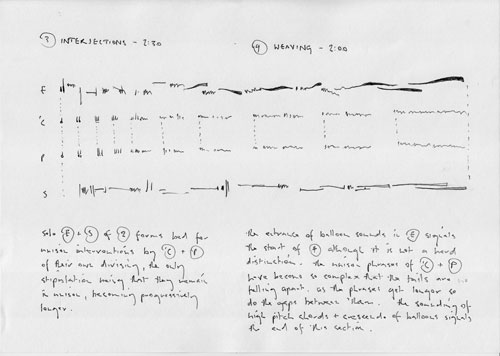 ③ INTERJECTIONS - 2:30
④ WEAVING - 2:00
E
'C
P
S
Solo Ⓔ + Ⓢ of ② forms bed for
unison interventions by Ⓒ + Ⓟ
of their own devising, the only
stipulation being that they remain
in unison, becoming progressively
longer.
the entrance of balloon sounds in Ⓔ signals
the start of ④ although it is not a hard
distinction. the unison phrases of Ⓒ Ⓟ
have become so complex that the tails are
falling apart. as the phrases get longer so
do the gaps between them. the sounding of
high pitch chords + crescendo of balloons signals
the end of this section.